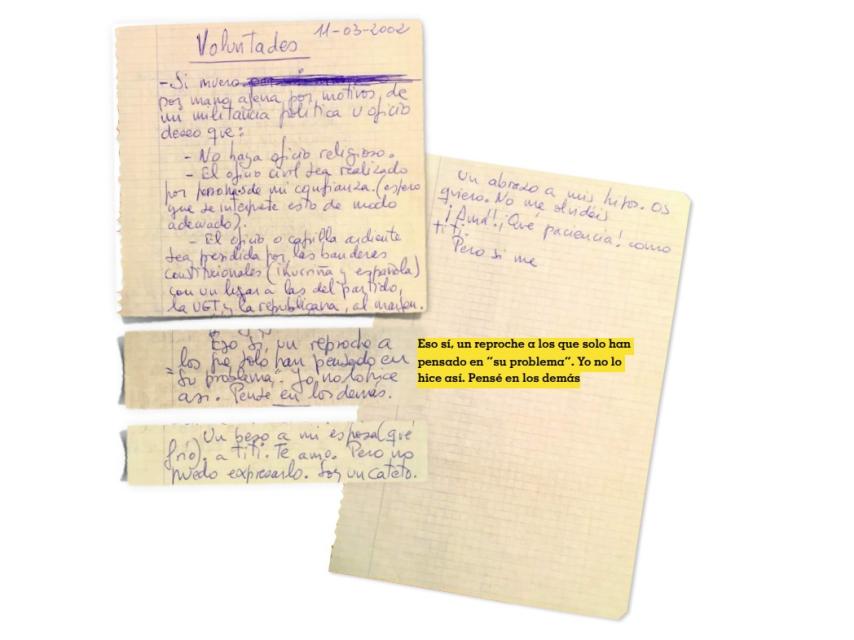 Voluntades 11-03-2002
- Si muero
por mano ajena por motivos de
mi militancia política u oficio
deseo que:
- No haya oficio religioso.
- El oficio civil sea realizado
por personas de mi confianza. (espero
que se interprete esto de modo
adecuado).
- El oficio o capilla ardiente
sea presidida por las banderas
constitucionales (ikurriña y española)
con un lugar a las del partido,
la UGT y la republicana, al margen.
Eso sí, un reproche a
los que solo han pensado en
"su problema". Yo no lo hice
así. Pensé en los demás.
Un beso a mi esposa (qué
frío), a titi. Te amo. Pero no
puedo expresarlo. Soy un cateto.
Un abrazo a mis hijos. Os
quiero. No me olvidéis
¡Amá! ¡Qué paciencia! como
titi.
Pero si me
Eso sí, un reproche a los que solo han
pensado en “su problema”. Yo no lo
hice así. Pensé en los demás